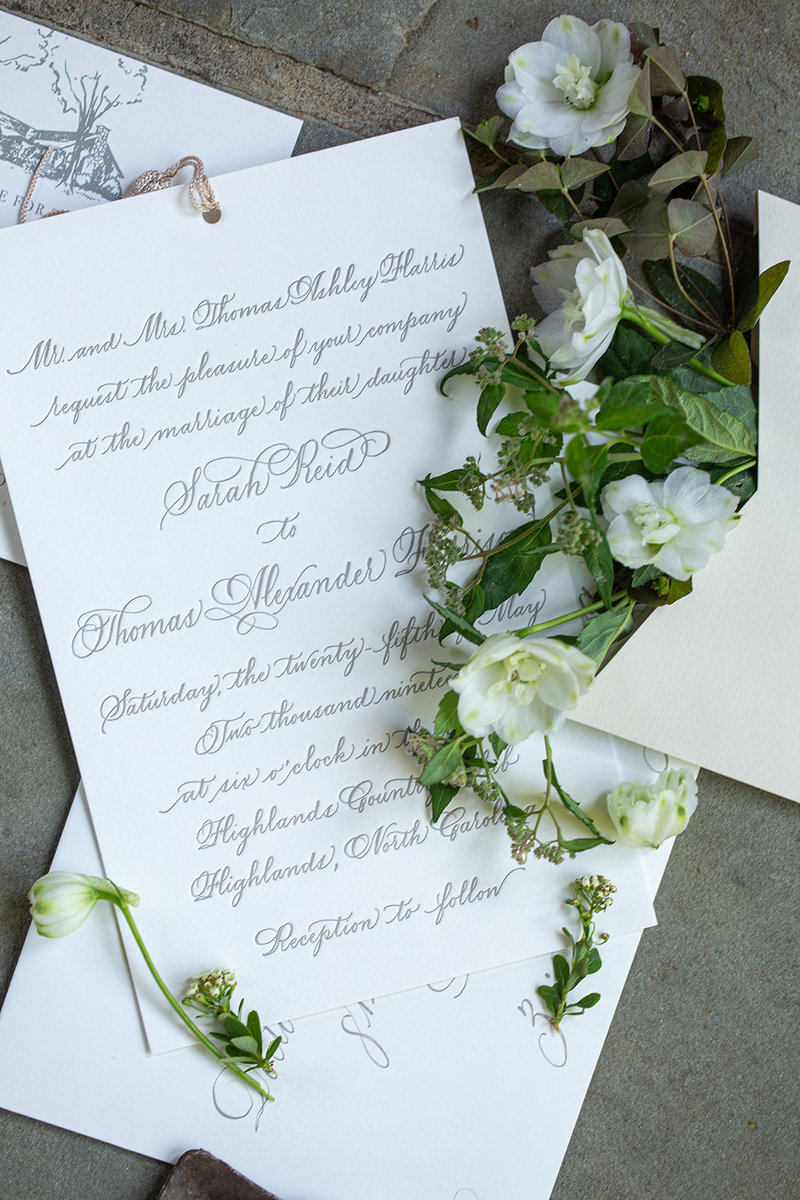 E FOR
Mr. and Mrs. Thomas Ashley Harris
request the pleasure of your company
at the marriage of their daughter
Sarah Reid
to
Thomas Alexander
Saturday, the twenty-fifth of May
Two thousand
at six o'clock in the
Highlands Country
Highlands, North Carolina
Reception to follow